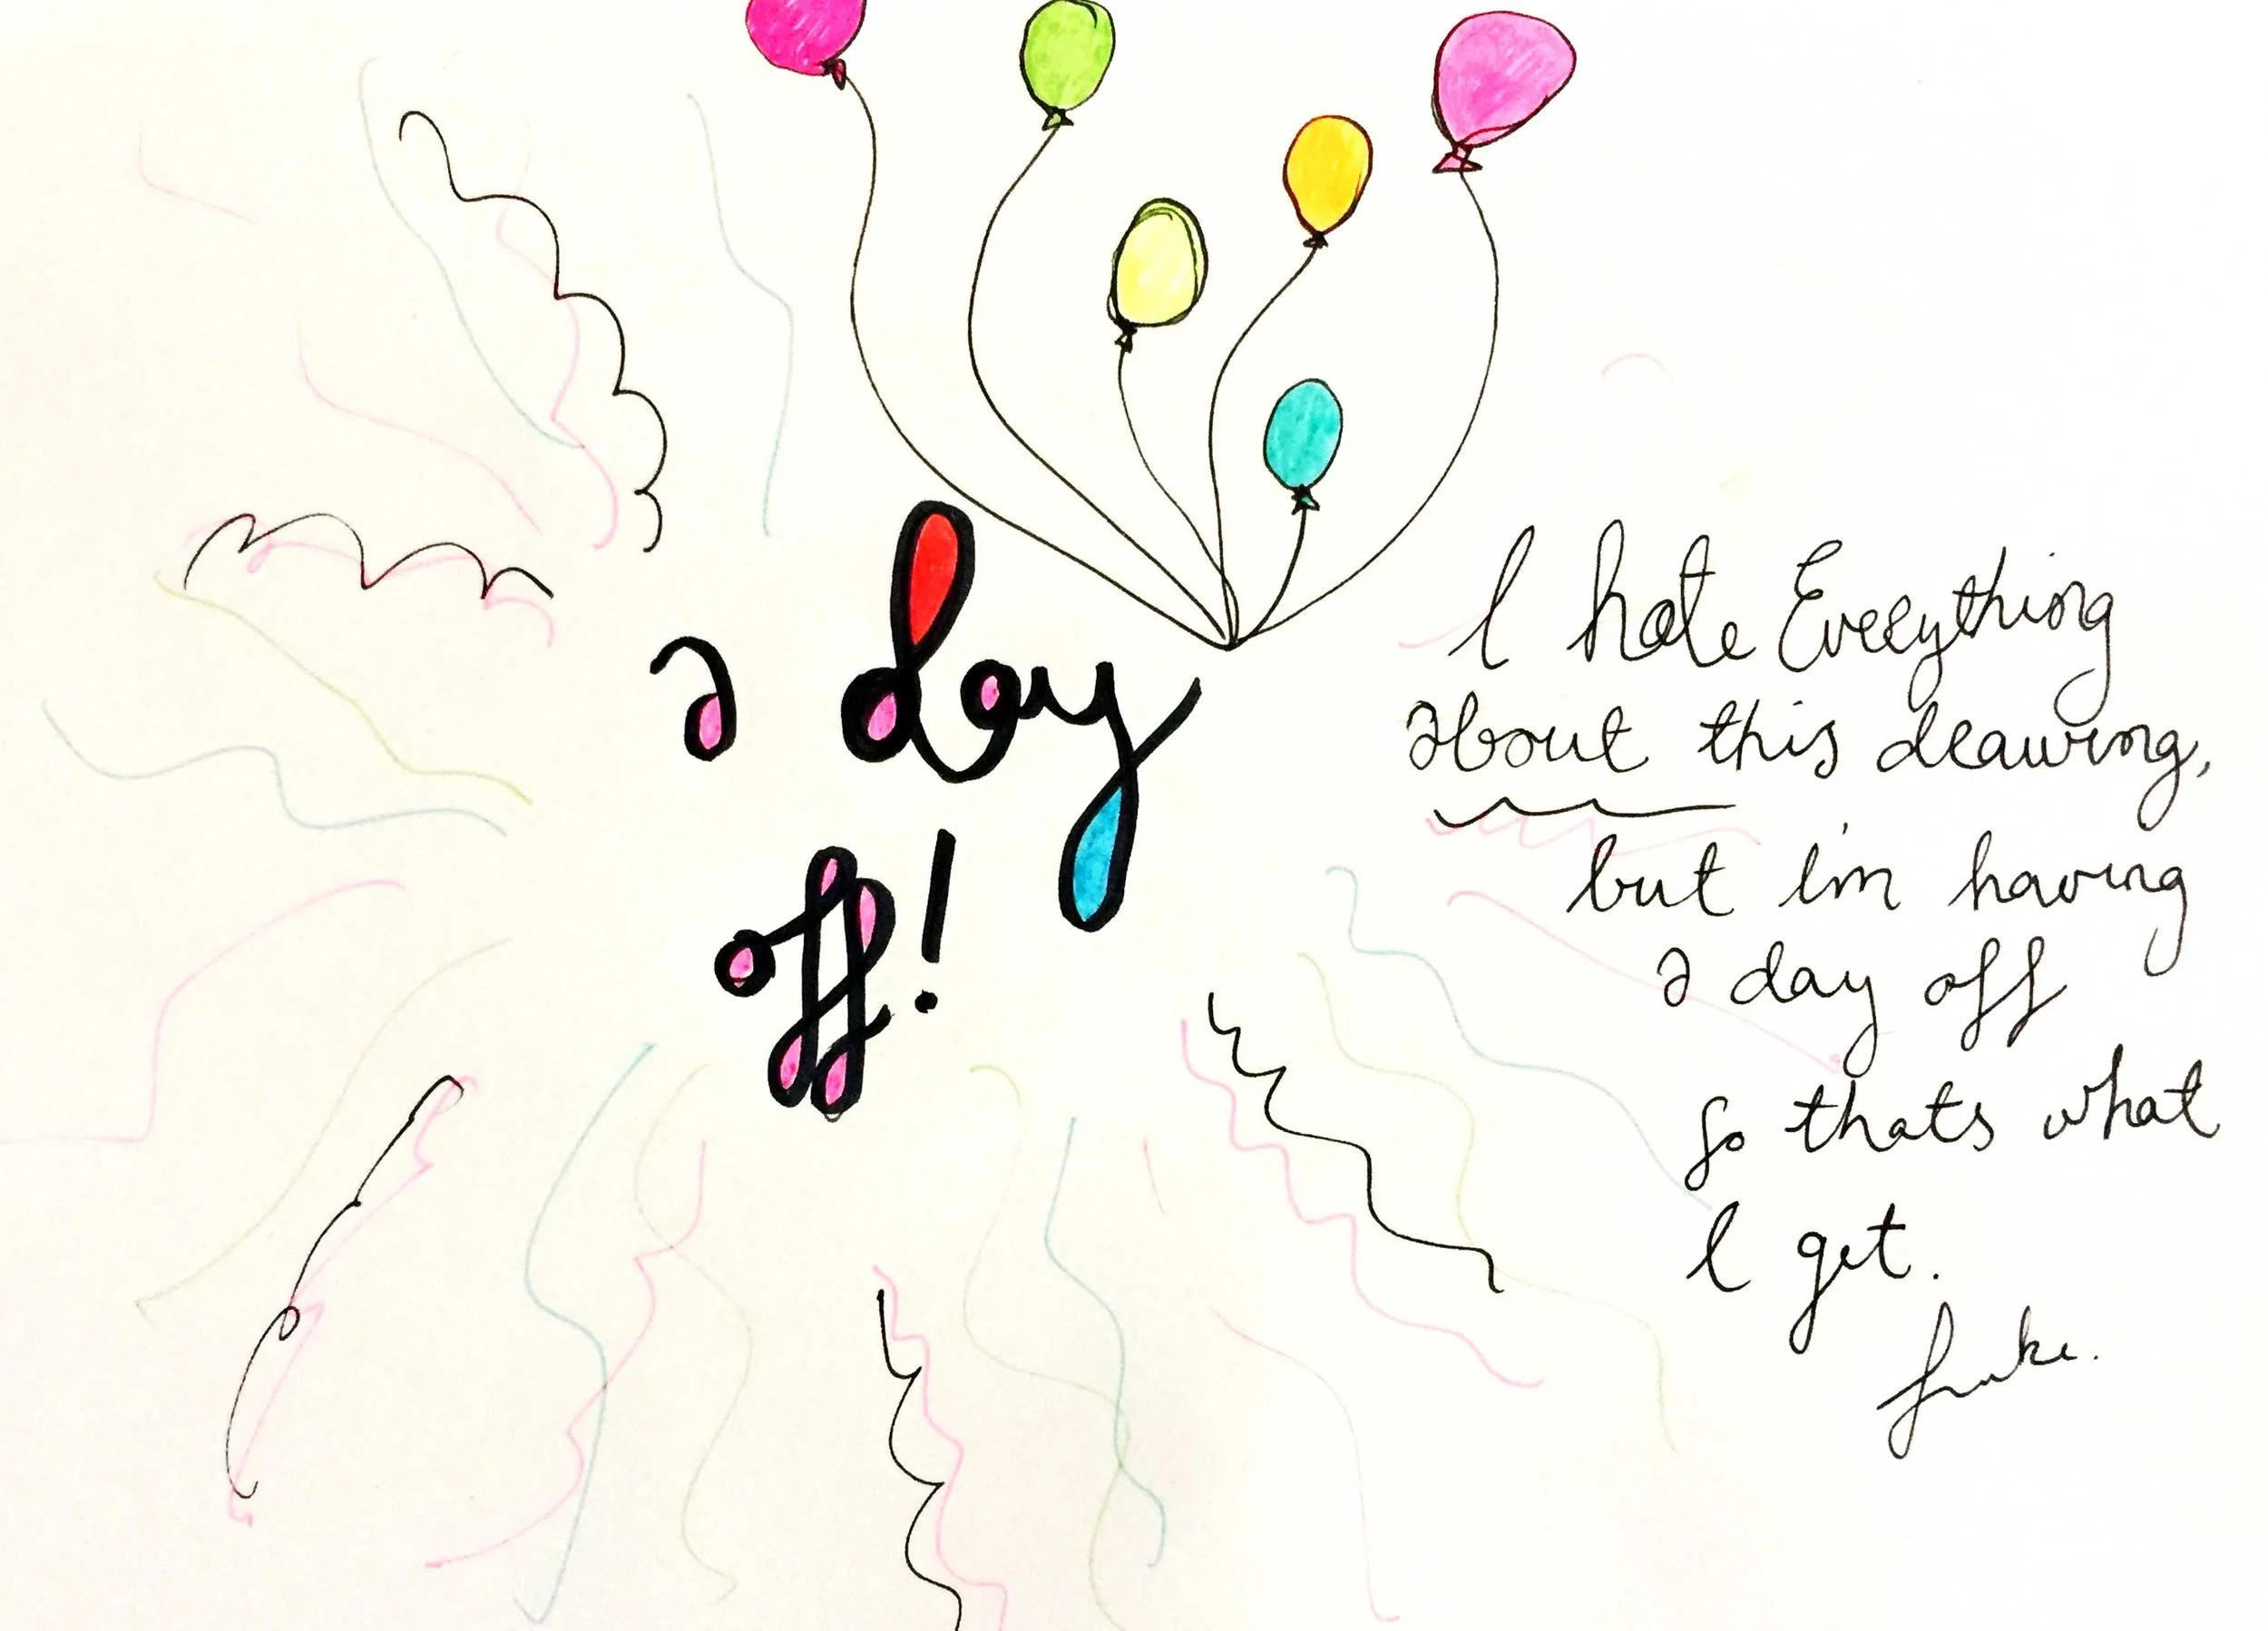 a day
off!
I hate Everything
about this drawing,
but I'm having
a day off
so thats what
I get.